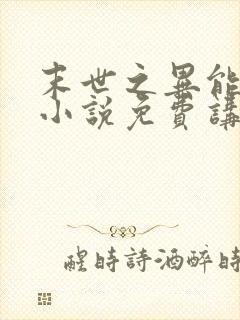 末世之異能
小說免費講
醒時詩酒醉時